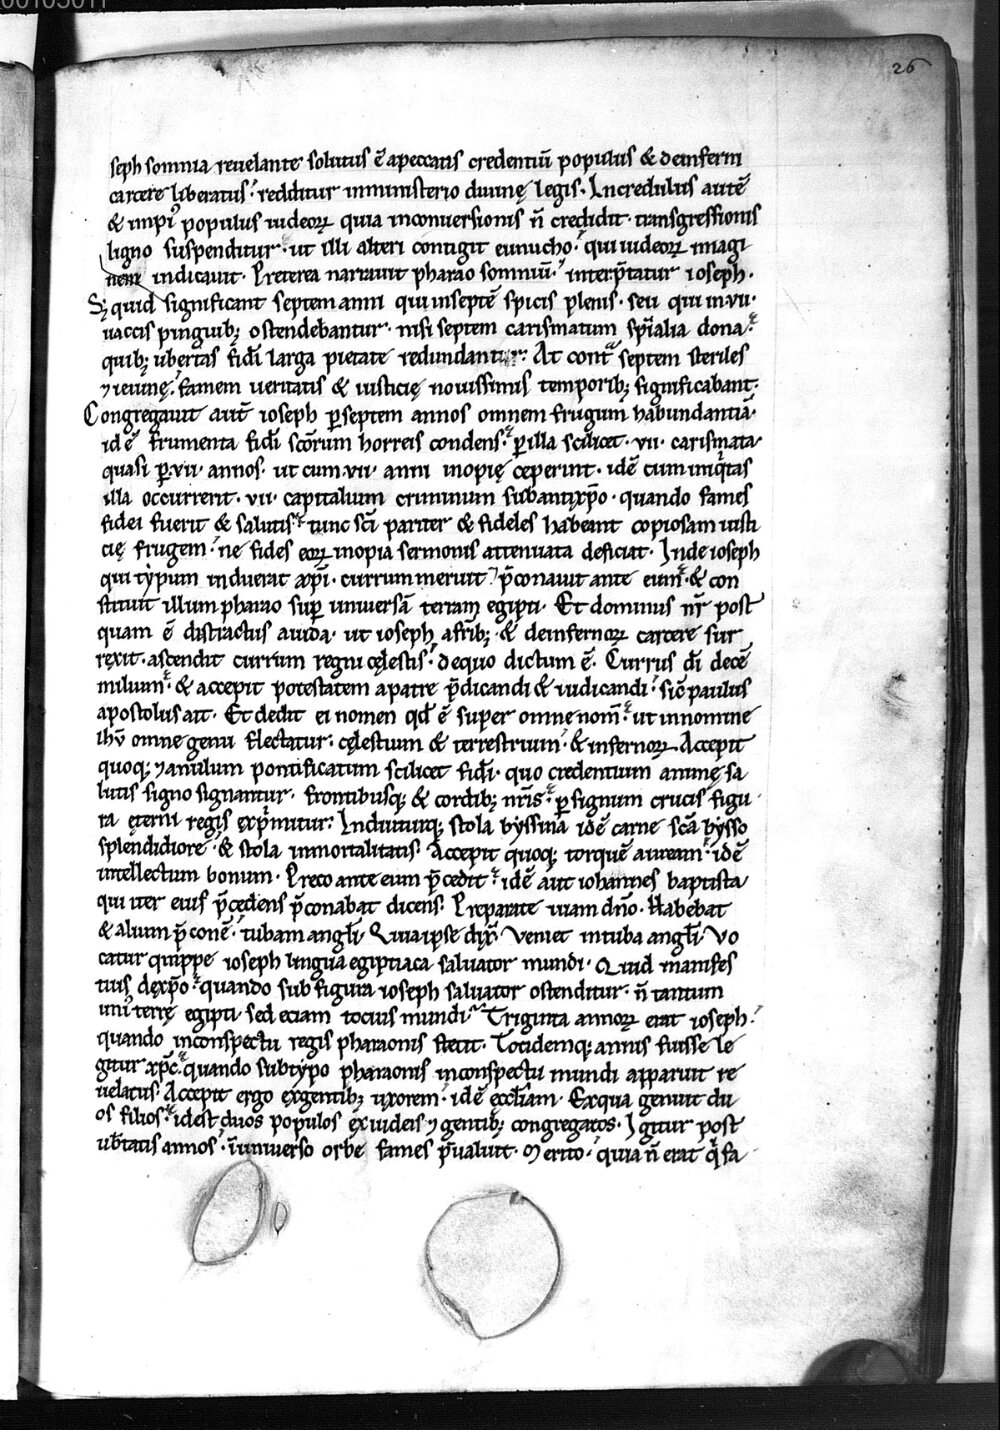 26
seph somnia reuelante solutus ē apeccatis credentiū populus & deinferni
carcere liberatus. redditur inministerio diuinę legis. Incredulus autē
& impiꝰ populus iudeoꝝ quia inconuersionis n̄ credidit. transgressionis
ligno suspenditur. ut illi alteri contigit eunucho. qui iudeoꝝ imagi
nem indicauit. Preterea narrauit pharao somniū. interp̄tatur ioseph.
Sꝫ quid significant septem anni qui inseptē spicis plenis. seu qui in.vii.
uaccis pinguibꝫ ostendebantur. nisi septem carismatum sp̄ialia dona.
quibꝫ ubertas fidei larga pietate redundantur. At cont̄ septem steriles
⁊ ieiunę. famem ueritatis & iusticię nouissimis temporibꝫ significabant.
Congregauit aut̄ ioseph ꝑseptem annos omnem frugum habundantiā.
idē frumenta fidei sc̄orum horreis condens. ꝑilla scilicet .vii. carismata.
quasi ꝑ.vii. annos. ut cum .vii. anni inopię ceperint. idē cum iniqͥtas
illa occurrerit .vii. capitalium criminum subantixp̄o. quando fames
fidei fuerit & salutis. tunc sc̄i pariter & fideles habeant copiosam iusti
cię frugem. ne fides eoꝝ inopia sermonis attenuata deficiat. Inde ioseph
qui typum induerat xp̄i. currum meruit. p̄conauit ante eum. & con
stituit illum pharao suꝑ uniuersā terram egipti. Et dominus nr̄ post
quam ē distractus auida. ut ioseph afr̄ibꝫ. & deinfernoꝝ carcere sur
rexit. ascendit currum regni cęlestis. dequo dictum ē. Currus dī decē
milium. & accepit potestatem apatre p̄dicandi & iudicandi. sic̄ paulus
apostolus ait. Et dedit ei nomen qd̄ ē super omne nom̄. ut innomine
ih̄u omne genu flectatur. cęlestium & terrestrium. & infernoꝝ. Accepit
quoqꝫ ⁊ anulum pontificatum scilicet fidei. quo credentium animę sa
lutis signo signantur. frontibusqꝫ & cordibꝫ nr̄is. ꝑ signum crucis figu
ra ęterni regis exp̄mitur. Induiturqꝫ stola byssina idē carne sc̄a bysso
splendidiore. & stola inmortalitatis. Accepit quoqꝫ torquē aureum. idē
intellectum bonum. Preco ante eum p̄cedit. idē aut̄ iohannes baptista
qui iter eius p̄cędens p̄conabat dicens. Preparate uiam dn̄o. Habebat
& alium p̄conē. tubam angl̄i. Quia ipse dix̄. Veniet intuba angl̄i. Vo
catur quippe ioseph lingua egiptiaca saluator mundi. Quid manifes
tius dexp̄o. quando sub figura ioseph saluator ostenditur. n̄ tantum
uniꝰ terrę egipti. sed eciam tocius mundi. Triginta annoꝝ erat ioseph.
quando inconspectu regis pharaonis stetit. Totidemqꝫ annis fuisse le
gitur xp̄c. quando subtypo pharaonis inconspectu mundi apparuit re
uelatus. Accepit ergo exgentibꝫ uxorem. idē eccl̄iam. Exqua genuit du
os filios. idest duos populos exiudeis ⁊ gentibꝫ congregatos. Igitur post
ub̄tatis annos. iuniuerso orbe fames p̄ualuit. Merito. quia n̄ erat qͥ sa